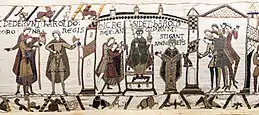 DEDERVNT hAROLDO
CORONA REGIS
hIC RESIDET hAROLD
REX ANGLORVM
STIGANT
ARChIEPS